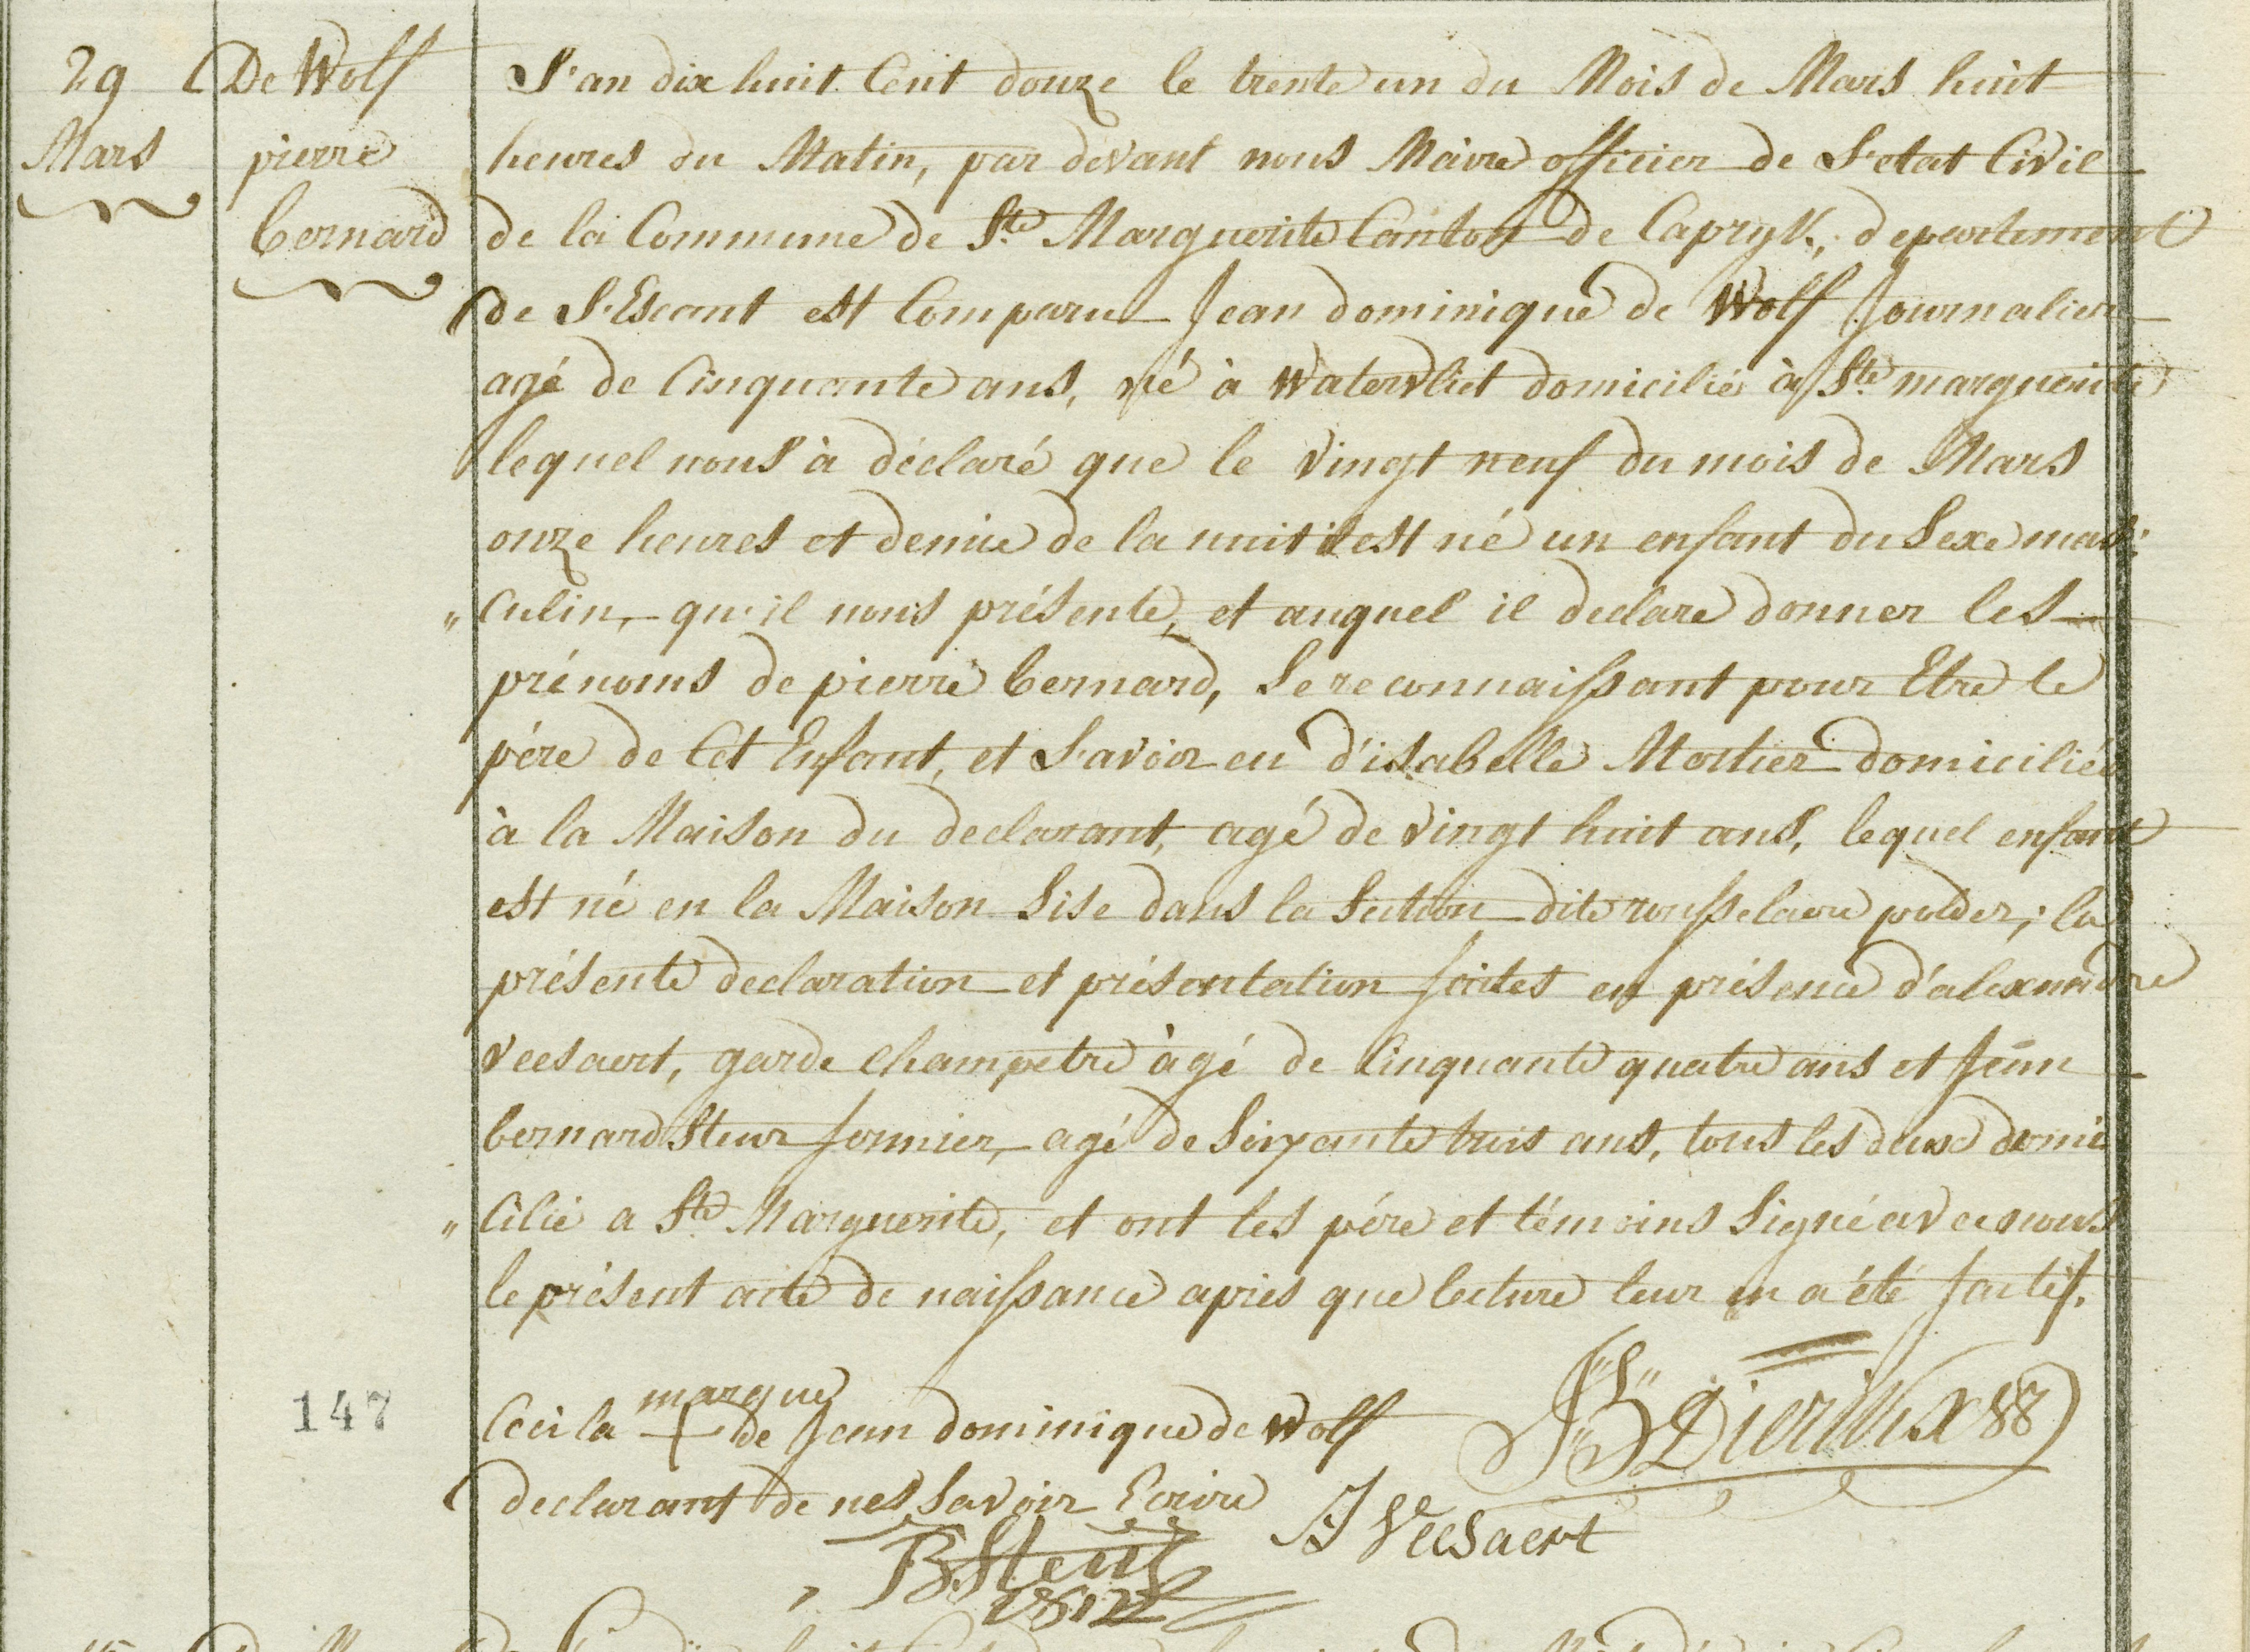 29 Mars
De Wolf
pierre
bernard
L'an dix huit Cent douze le trente un du Mois de Mars huit
heures du Matin, par devant nous Maire officier de L'etat Civil
de la Commune de Ste Marguerite Canton de Capryk, departement
de L'Escaut est Comparu Jean dominique de Wolf Journalier
agé de Cinquante ans, né à Watervliet domicilié à Ste marguerite
lequel nous à déclaré que le vingt neuf du mois de Mars
onze heures et demie de la nuit il est né un enfant du Sexe mas:
"culin, qu'il nous présente, et auquel il declare donner les
prénoms de pierre bernard, Se reconnaissant pour Etre le
pére de Cet Enfant, et L'avoir eu d'isabelle Mortier domiciliée
à la Maison du declarant, agé de vingt huit ans, lequel enfant
est né en la Maison Sise dans la Section dite rousselaere polder; la
présente declaration et présentation faites en présence d'alexandre
veesaert, garde champetre àgé de Cinquante quatre ans et Jean
bernard Steur fermier, agé de Soixante trois ans, tous les deux domi
"Cilié a Ste Marguerite, et ont les pére et témoins Signé avec nous
le présent acte de naissance apries que lecture leur en a été faites.
Ceci la marque + de Jean dominique de Wolf
declarant de nes Savoir Ecrire
JB Dierickx
AJ Veesaert
B Steur
1812
147